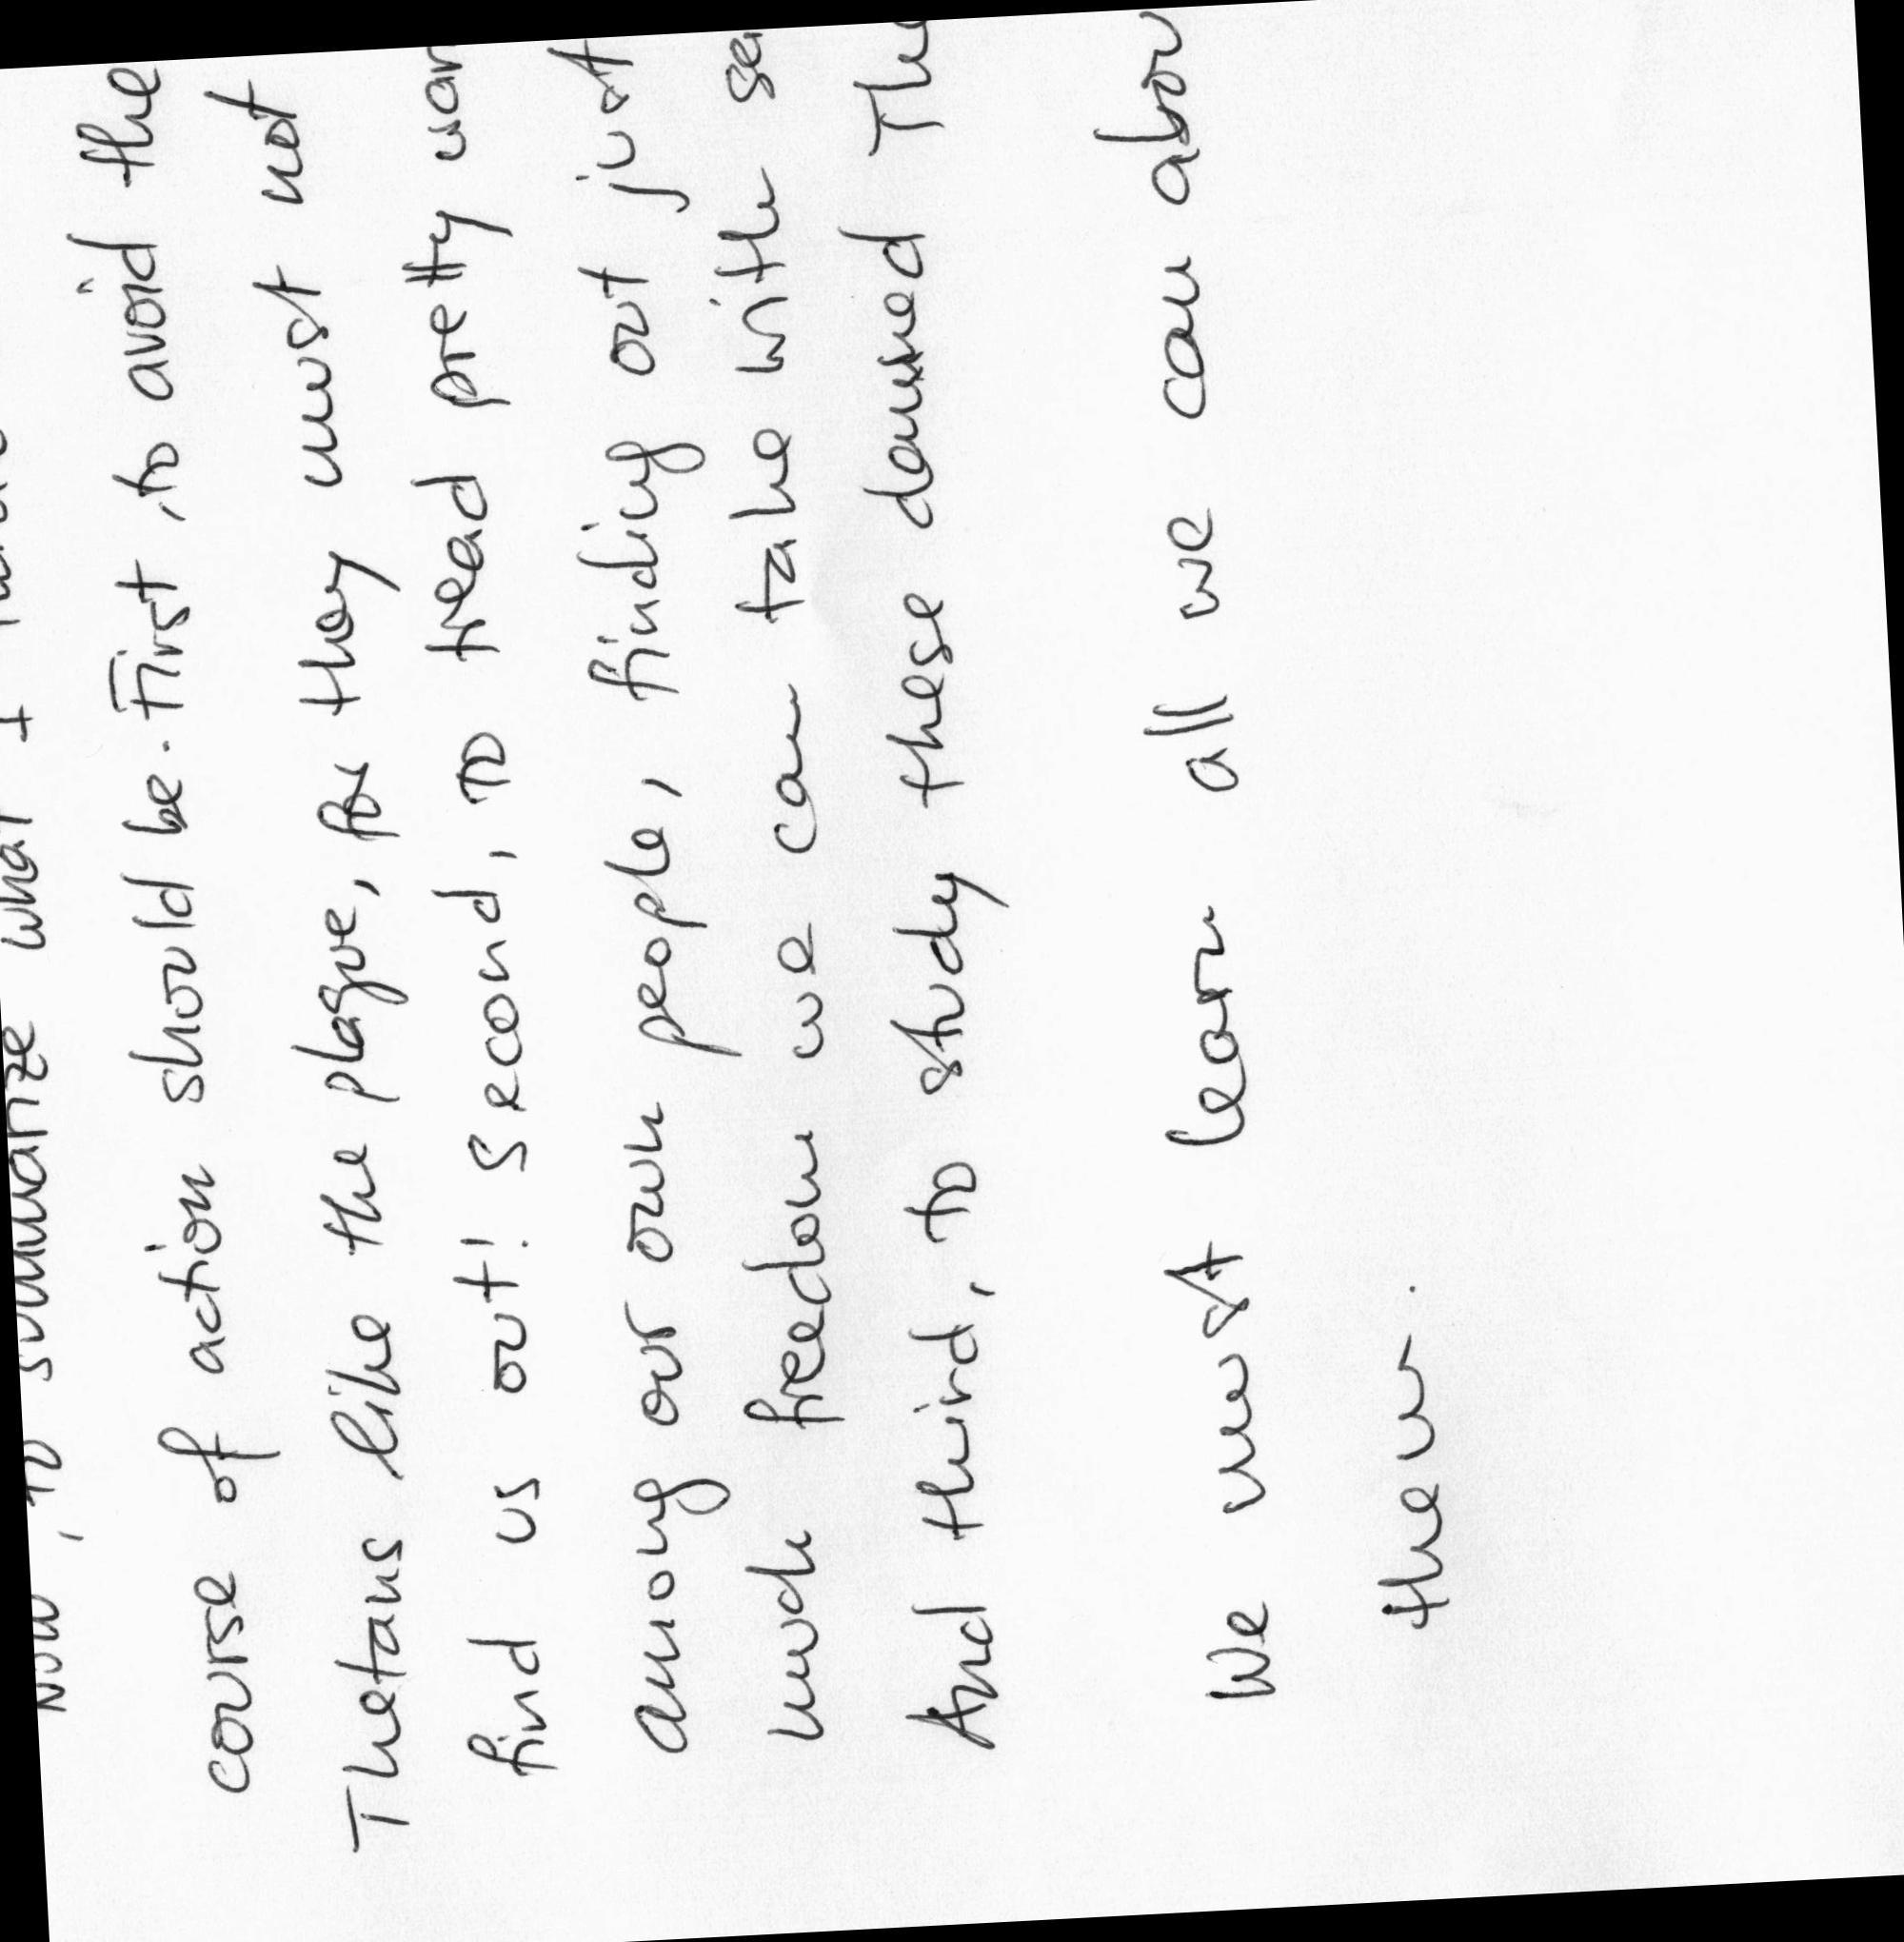 Now, to summarize what I
course of action should be. First, to avoid the
Thetans like the plague, for they must not
find us out! Second, to tread pretty
among our own people, finding out just
much freedom we can take with
And third, to study these damned
We must learn all we can
them.